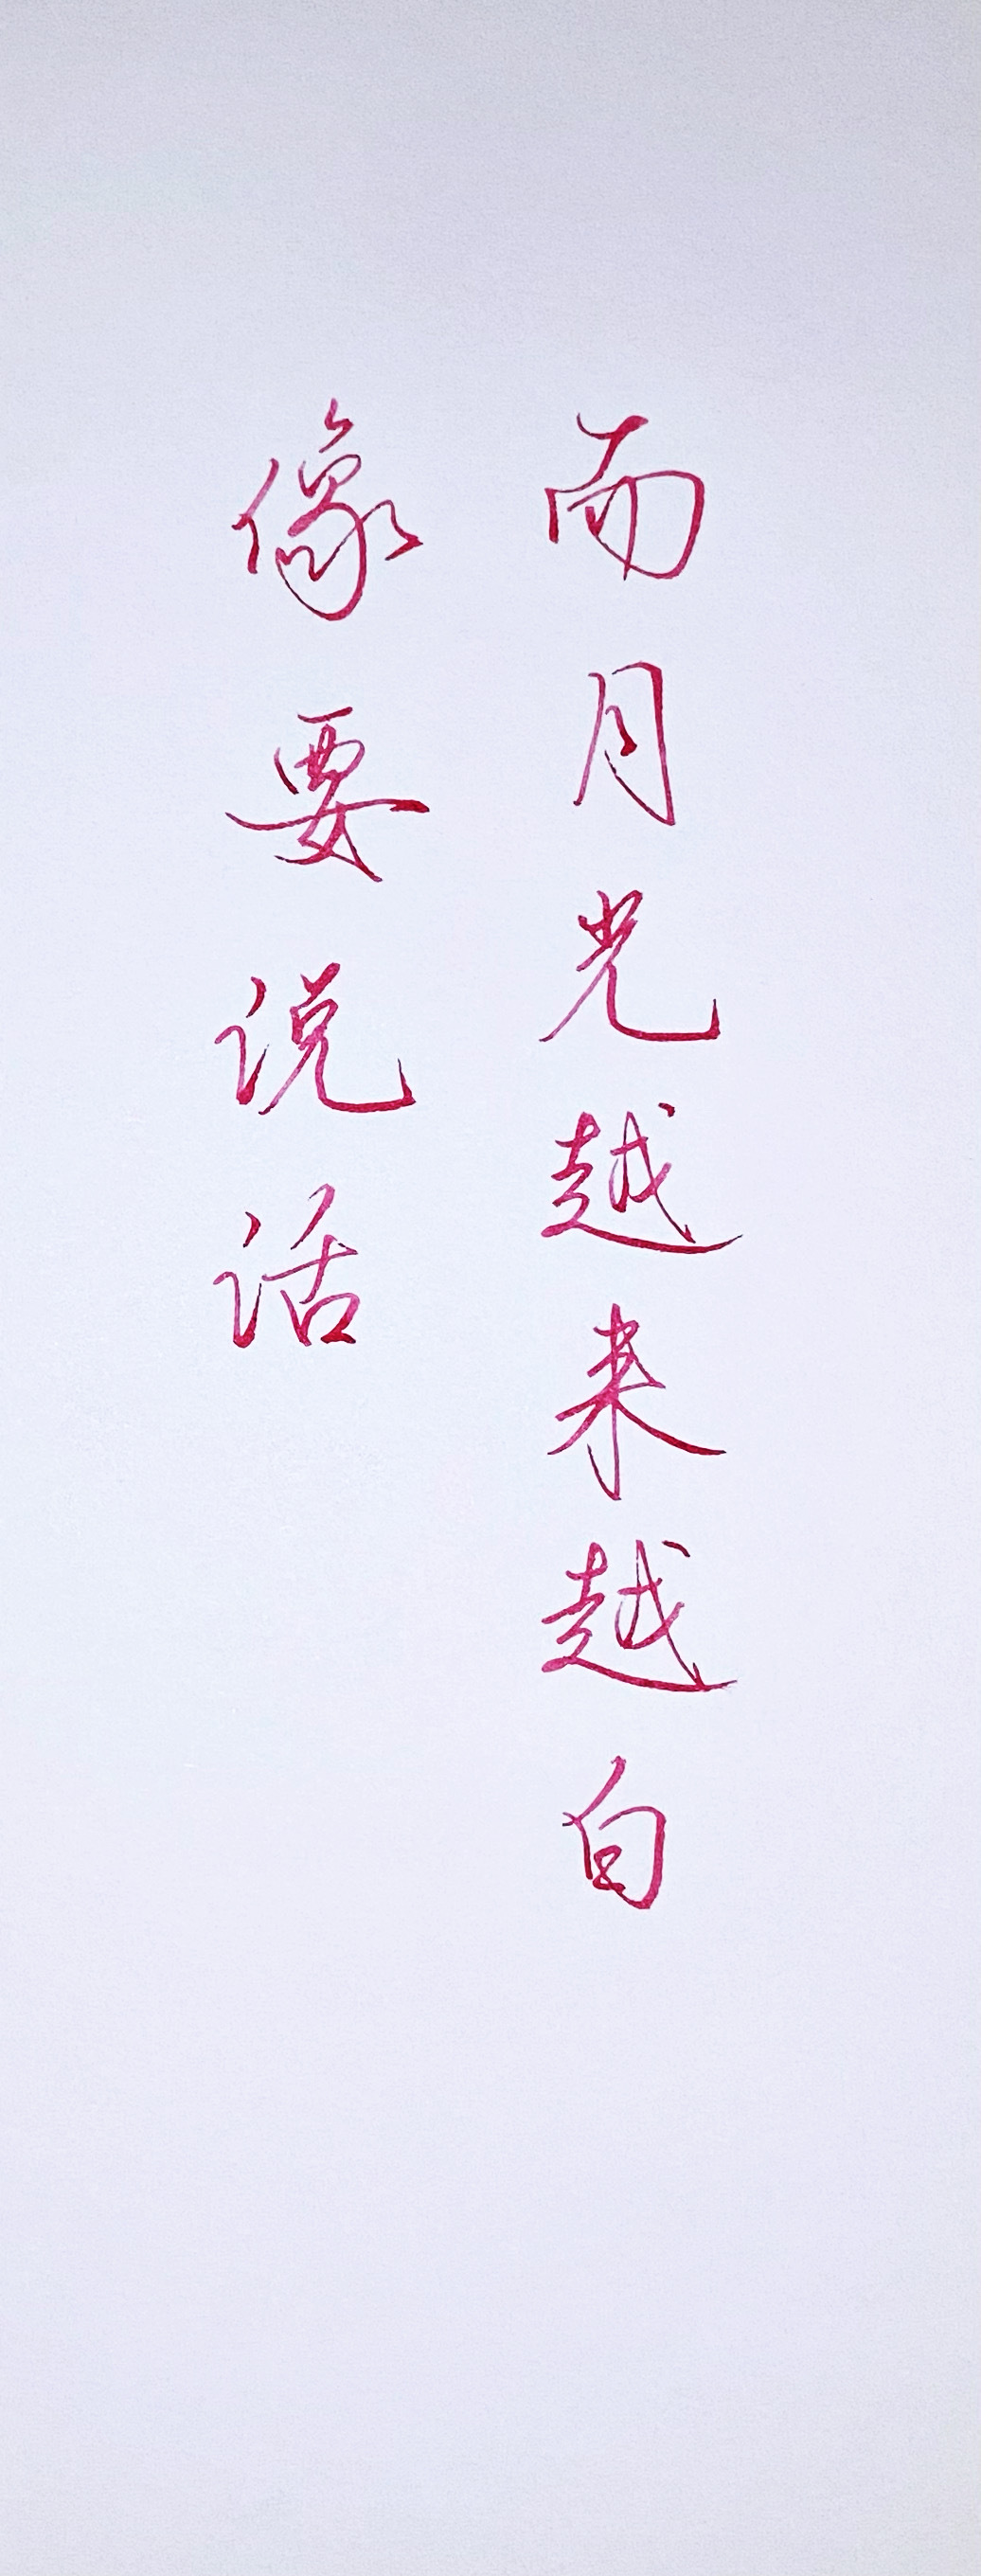 而月光越来越白
像要说话